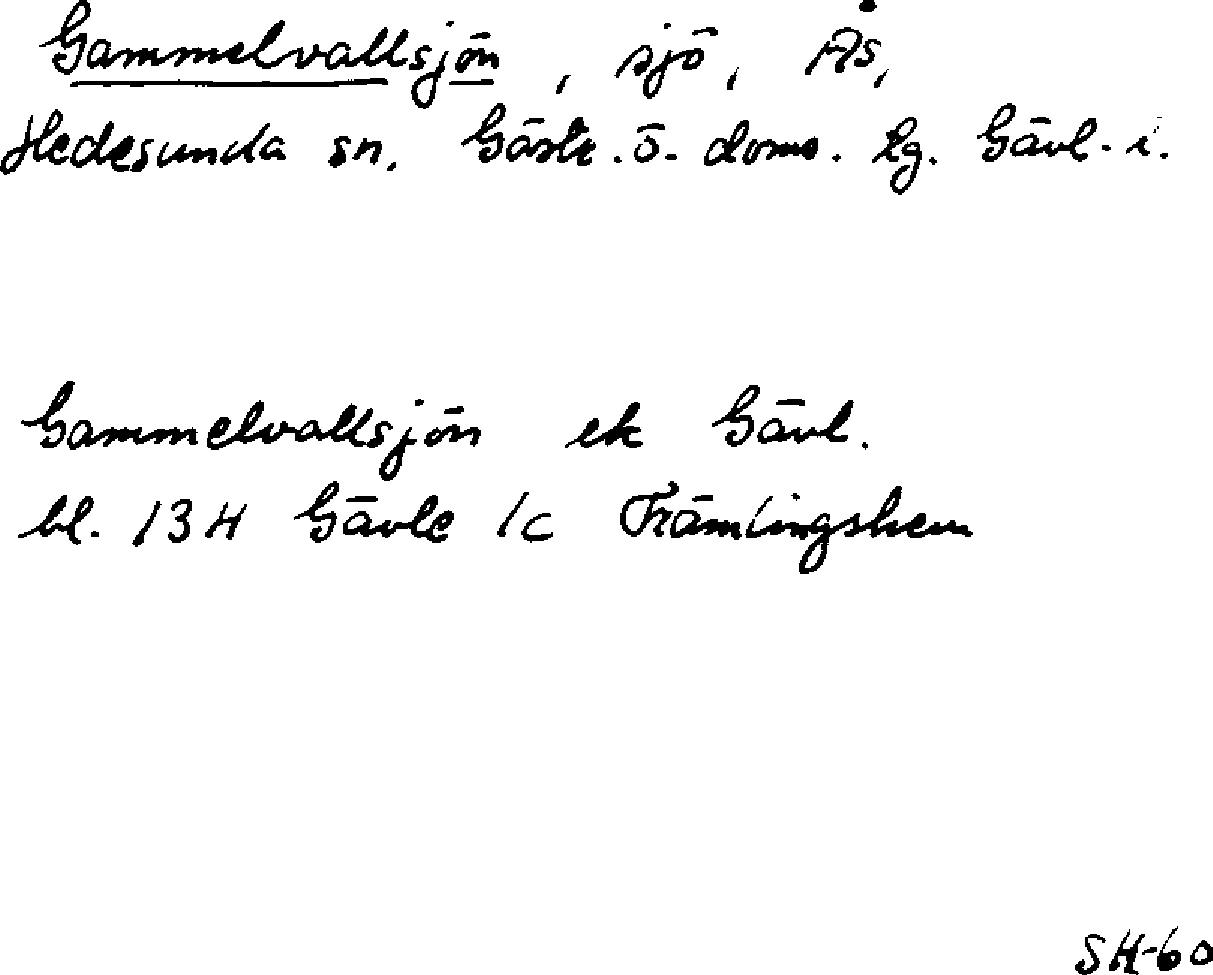 Gammelvallsjön, sjö, Ås,
Hedesunda sn. Gästr. ö. doms. lg. Gävl. i.
Gammelvallsjön ek Gävl.
bl. 13H Gävle 1c Främlingshem
SH-60